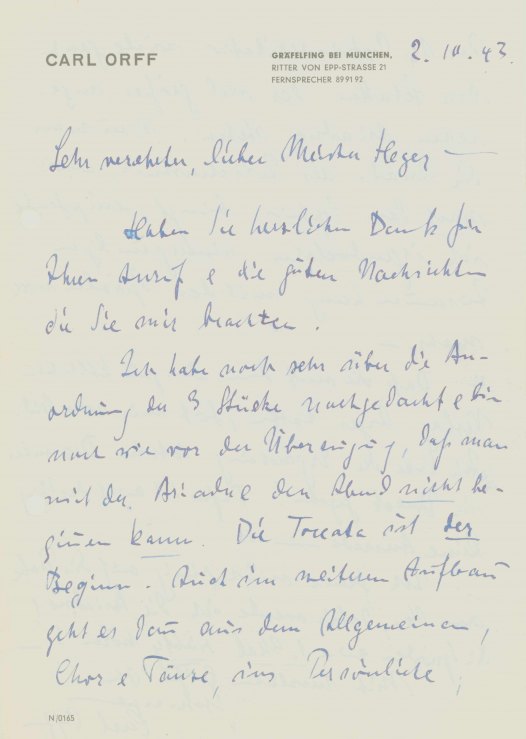 CARL ORFF
GRÄFELFING BEI MÜNCHEN,
RITTER VON EPP-STRASSE 21
FERNSPRECHER 89 91 92
2. 10. 43.
Sehr verehrter, lieber Meister Heger —
Haben Sie herzlichen Dank für
Ihren Anruf & die guten Nachrichten
die Sie mir brachten.
Ich habe noch sehr über die An-
ordnung der 3 Stücke nachgedacht & bin
nach wie vor der Überzeugung, daß man
mit der Ariadne den Abend nicht be-
ginnen kann. Die Toccata ist der
Beginn. Auch im weiteren Aufbau
geht es dann aus dem Allgemeinen,
Chor & Tänze, ins Persönliche,
N/0165